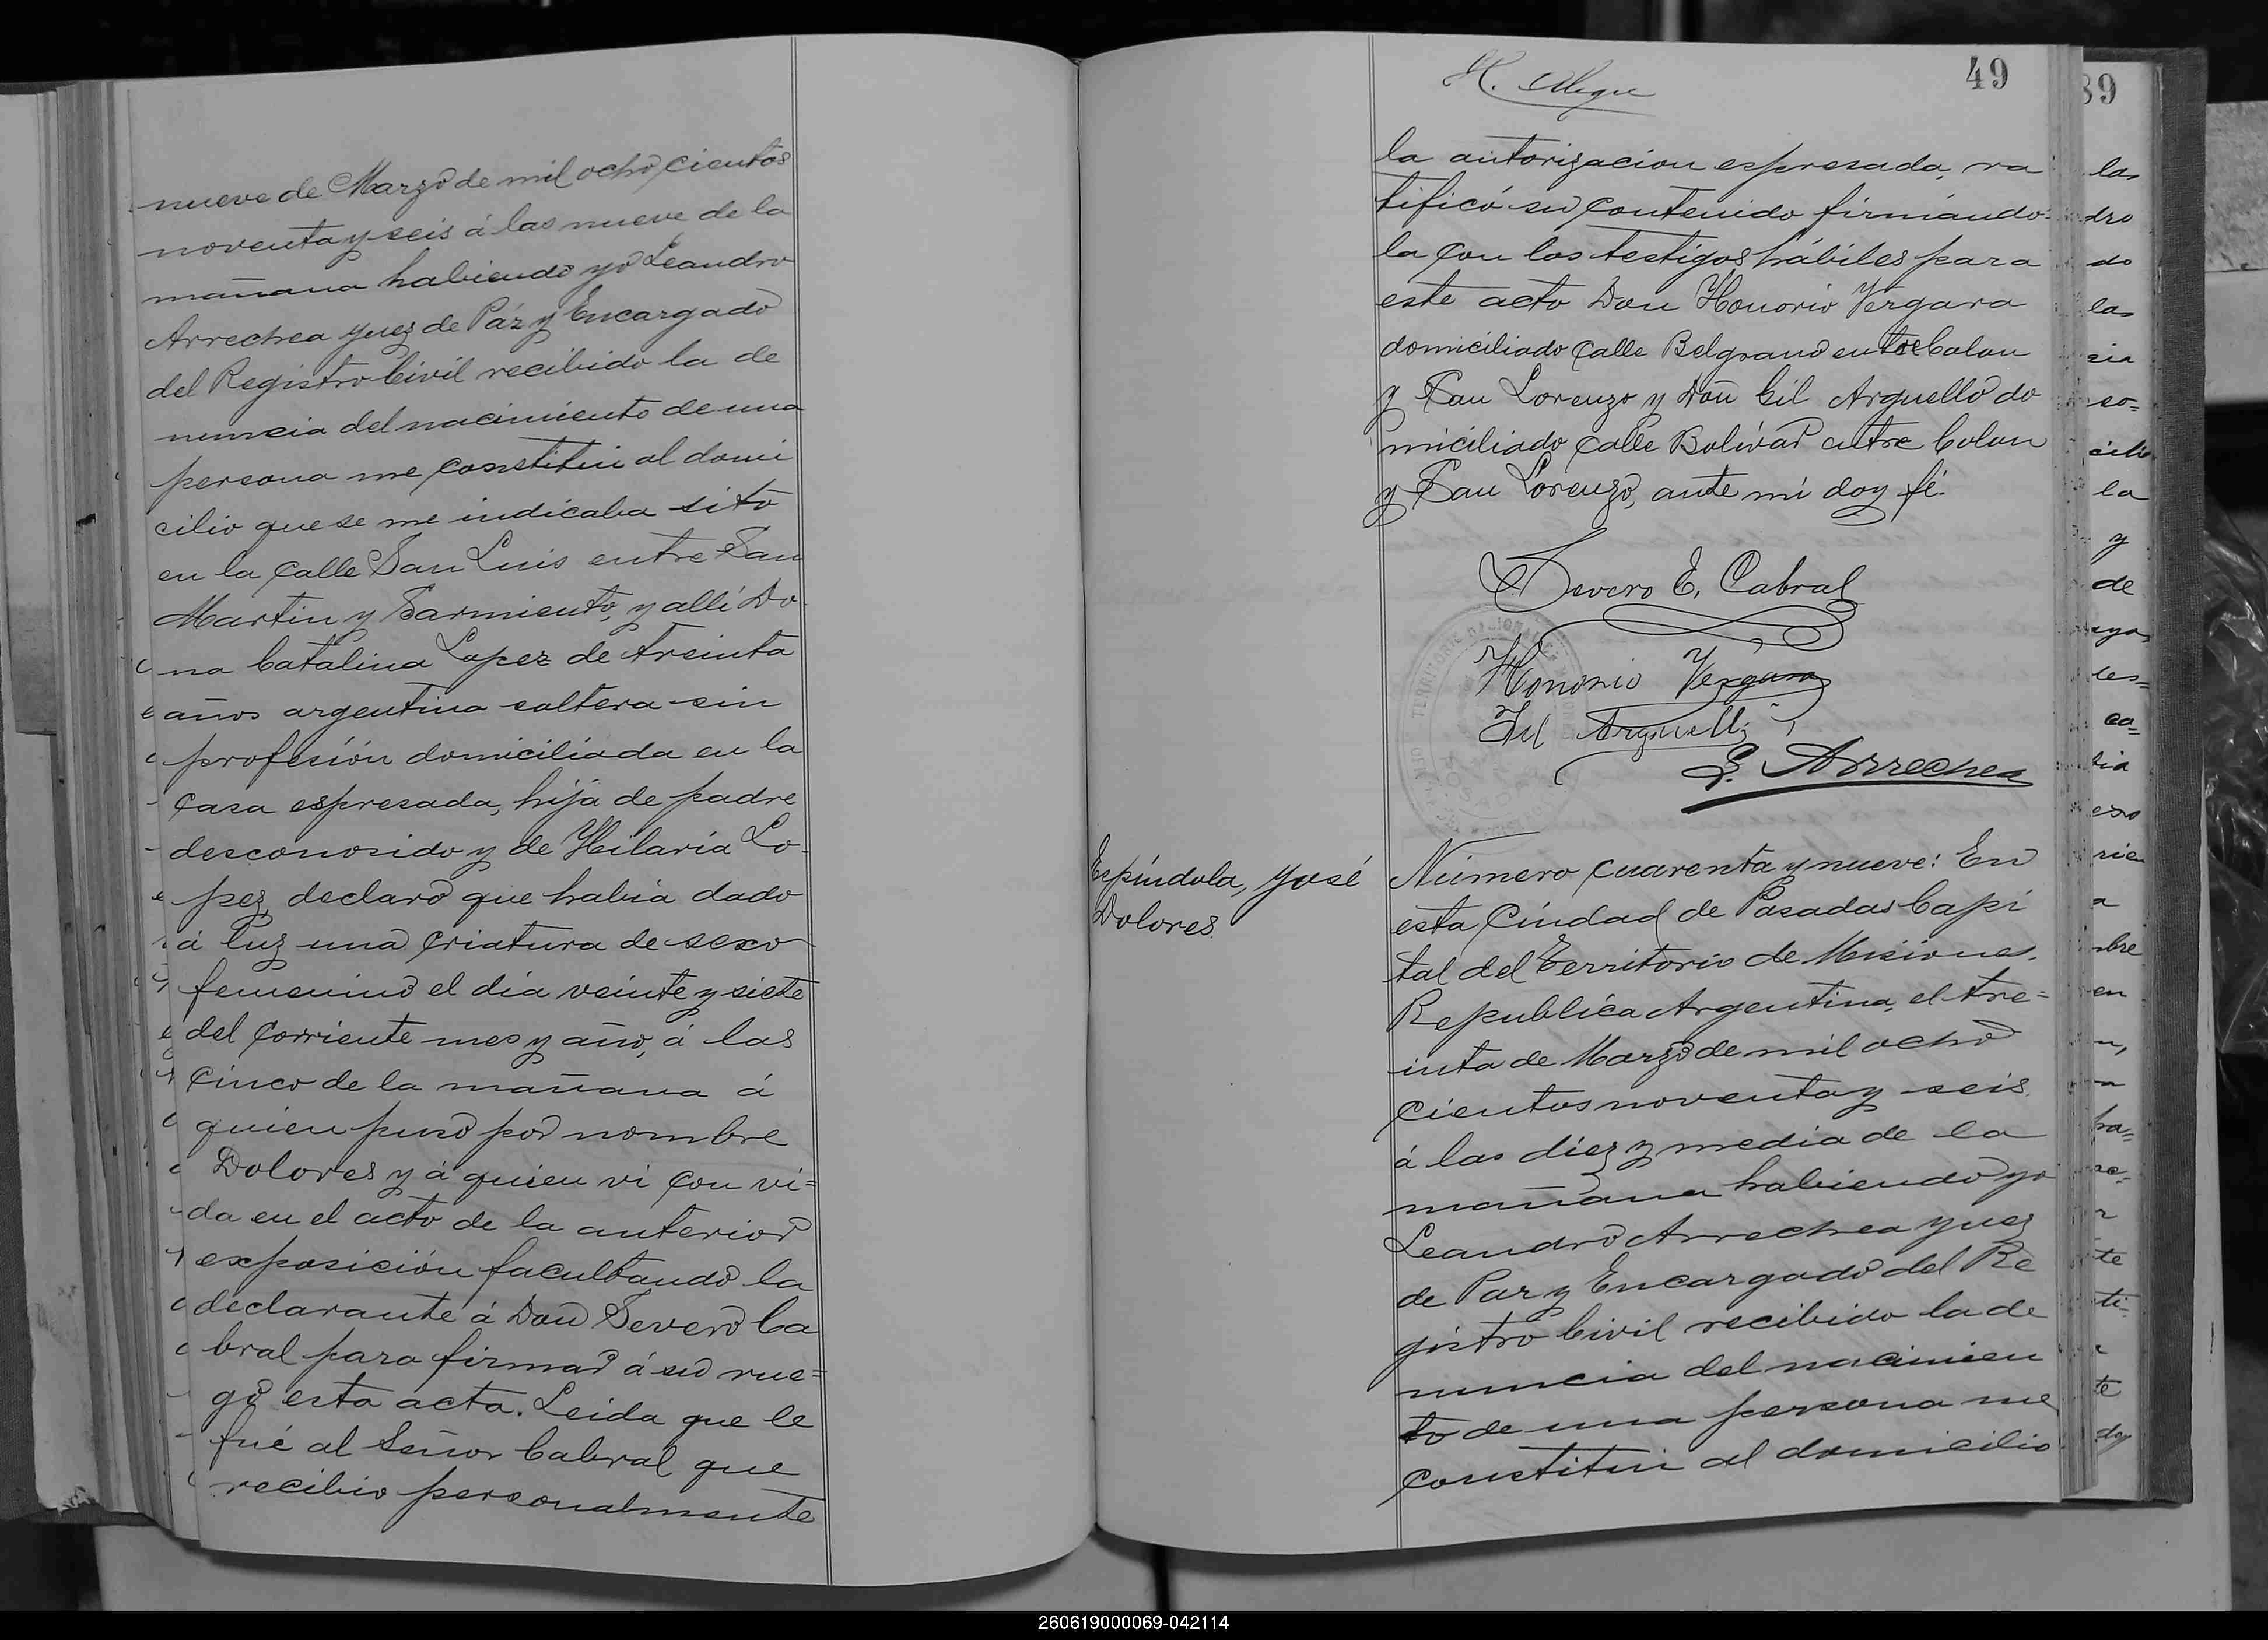 nueve de Marzo de mil ocho cientos
noventa y seis á las nueve de la
mañana habiendo yo Leandro
Arrechea Juez de Páz y Encargado
del Registro Civil recibido la de
nuncia del nacimiento de una
persona me constitui al domi
cilio que se me indicaba sito
en la calle San Luis entre San
Martin y Sarmiento, y allí Do
na Catalina Lopez de treinta
años argentina soltera sin
profesión domiciliada en la
casa espresada, hija de padre
desconosido y de Hilaria Lo-
pez, declaró que habia dado
á luz una criatura de sexo
femenino el dia veinte y siete
del corriente mes y año, á las
cinco de la mañana á
quien puso por nombre
Dolores y á quien vi con vi=
da en el acto de la anterior
exposición facultando la
declarante á Don Severo Ca
bral para firmar á su rue=
go esta acta. Leida que le
fué al Señor Cabral que
recibio personalmente
H. Alegre
49
la autorizacion espresada, ra
tificó su contenido firmando
la con los testigos hábiles para
este acto Don Honorio Vergara
domiciliado calle Belgrano entre Colon
y San Lorenzo y Don Gil Arguello do
miciliado calle Bolívar entre Colon
y San Lorenzo, ante mi doy fé.
Severo E. Cabral
Honorio Vergara
Gil Arguello
L. Arrechea
Espíndola, José
Dolores
Número cuarenta y nueve: En
esta Ciudad de Posadas Capi
tal del Territorio de Misiones,
Republica Argentina, el tre=
inta de Marzo de mil ocho
cientos noventa y seis
á las diez y media de la
mañana habiendo yo
Leandro Arrechea Juez
de Paz y Encargado del Re
gistro Civil recibido la de
nuncia del nacimien
to de una persona me
constitui al domicilio
89
las
dro
do
las
sia
so=
cilio
la
y
de
les=
ca=
sia
exo
rie
a
nbre
en
te
te
doy
260619000069-042114